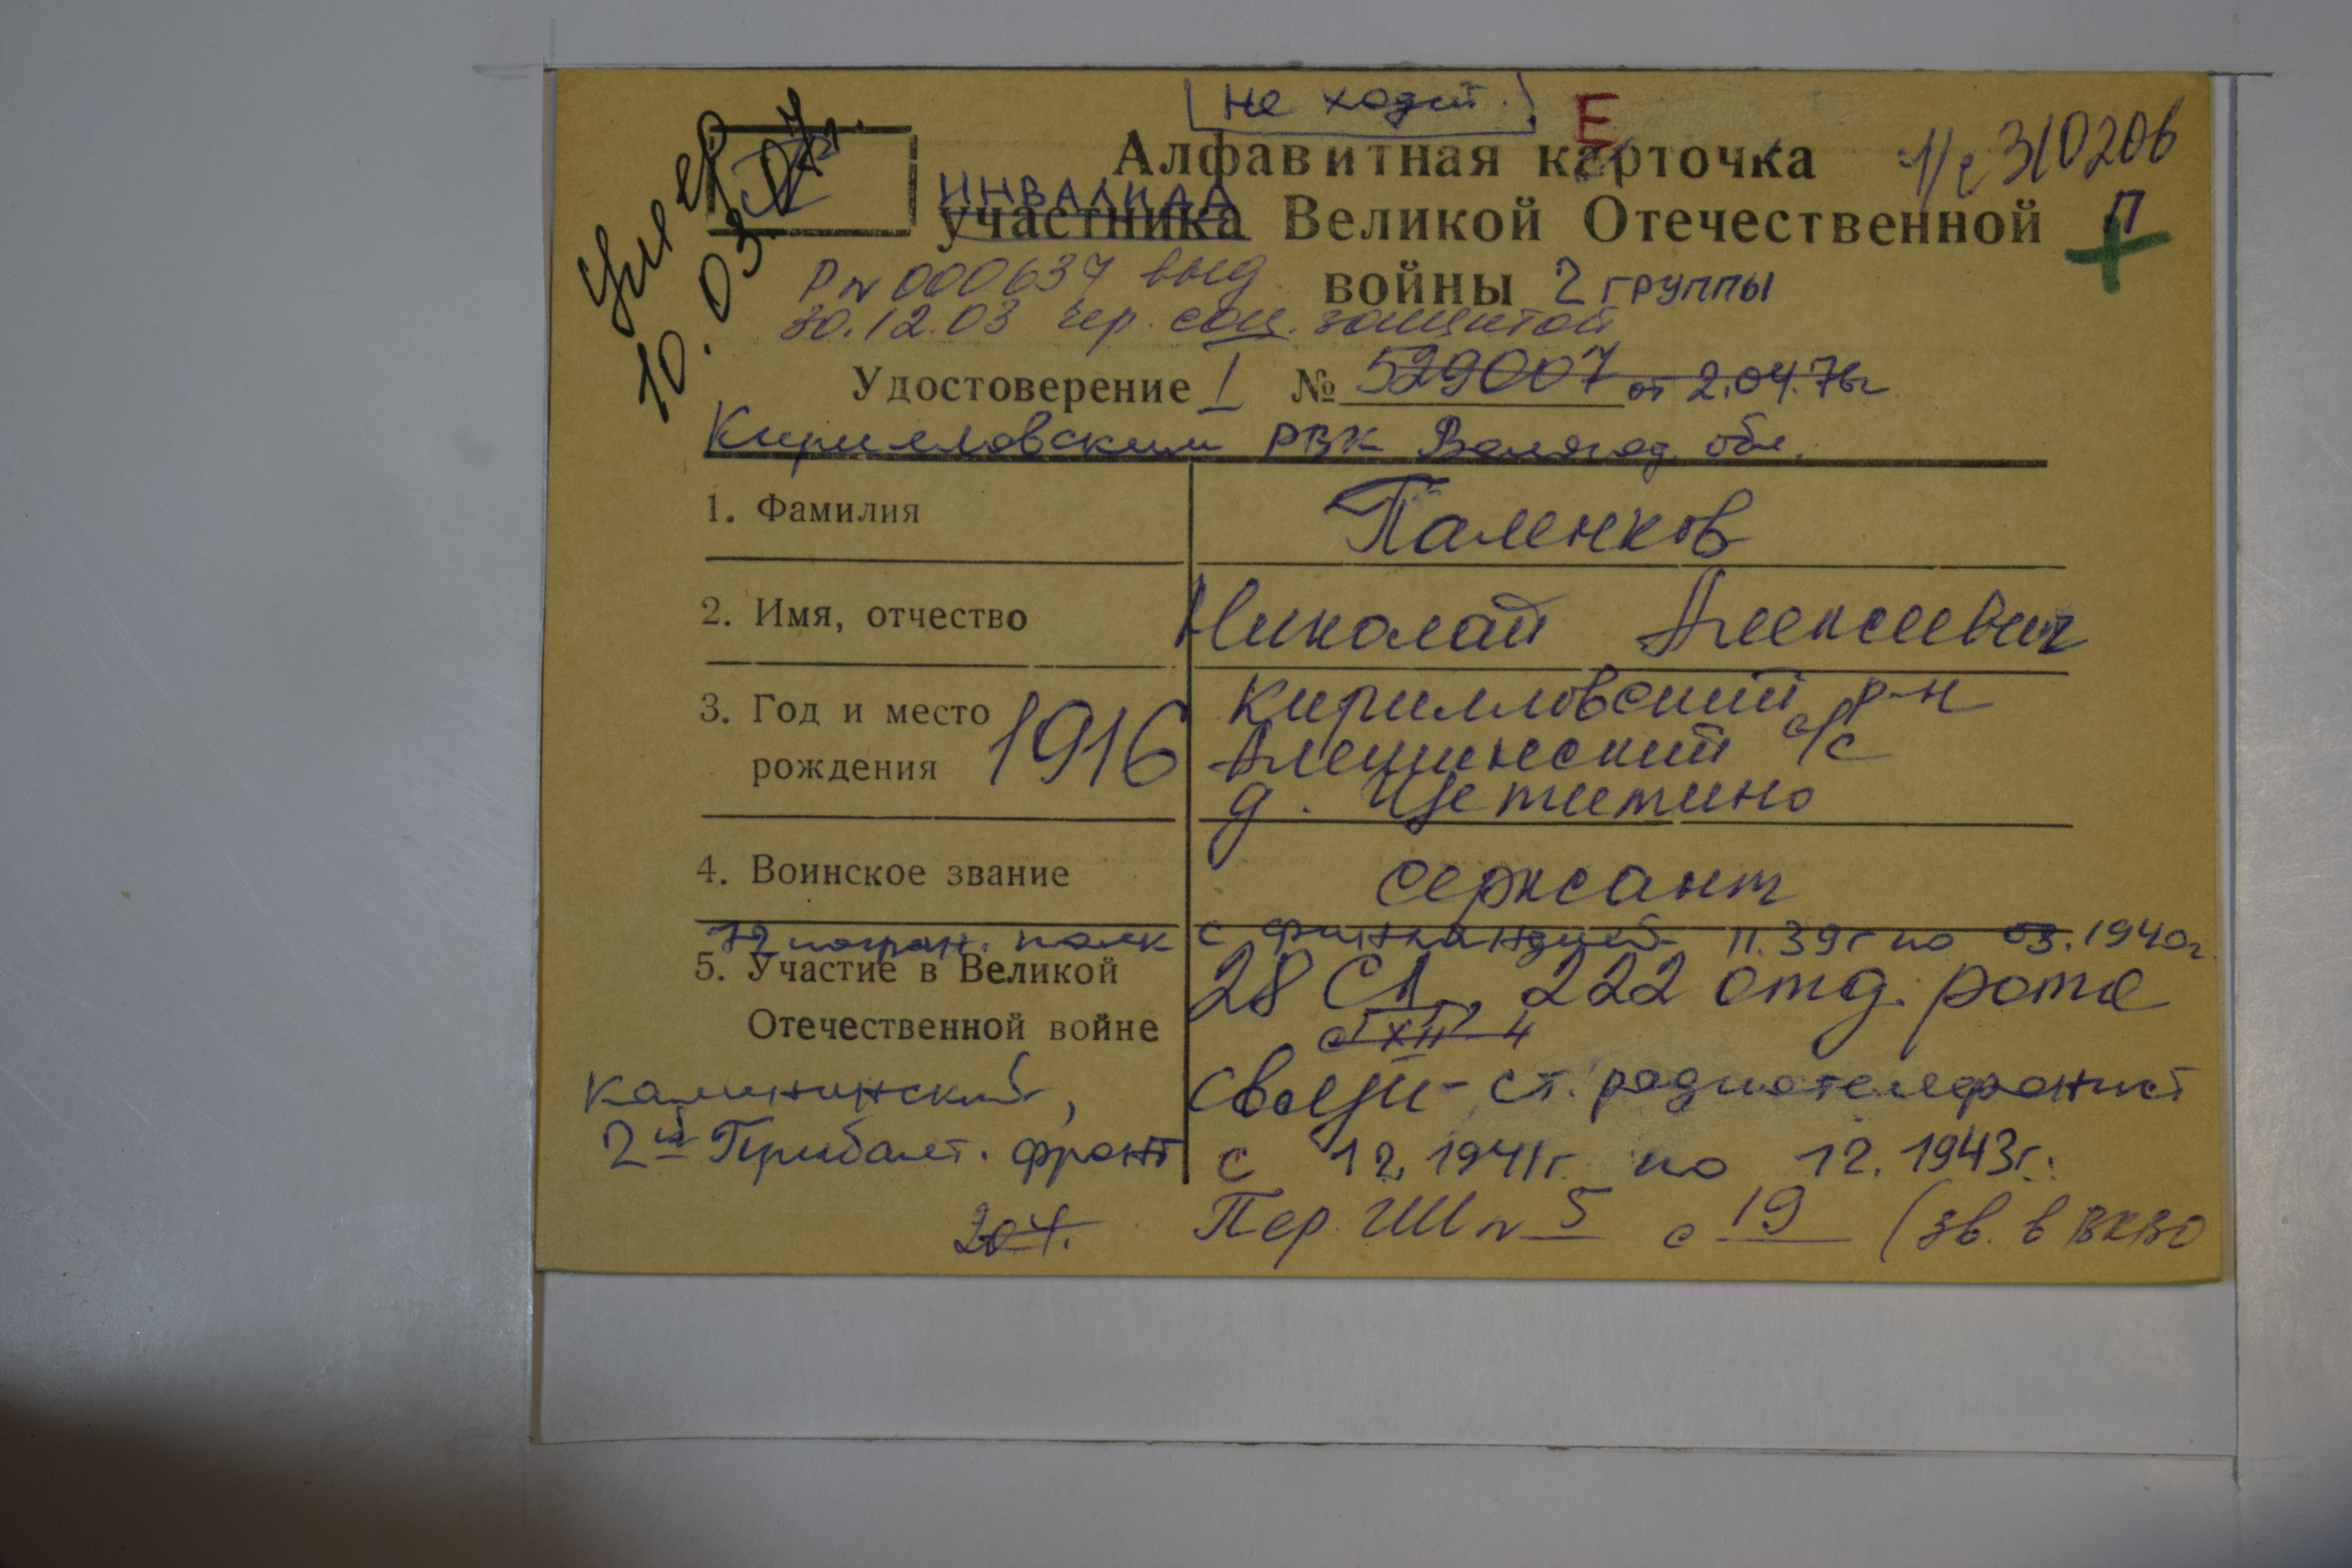 Не ходит.
Е
Алфавитная карточка
л/д 310206
инвалида
участника Великой Отечественной
П
войны 2 группы
Умер
10.03.07г.
Р № 000637 выд.
30.12.03 чер. соц. защитой
Удостоверение I № 529007 от 2.04.76г
Кирилловским РВК Вологод. обл.
1. Фамилия Паленков
2. Имя, отчество Николай Алексеевич
3. Год и место рождения 1916 Кирилловский р-н
Алешинский с/с
д. Щетинино
4. Воинское звание сержант
72 погран. полк с Финляндией 11.39г по 03.1940г.
5. Участие в Великой
Отечественной войне
28 СД, 222 отд. рота
с XII 4
связи - ст. радиотелефонист
с 12.1941г. по 12.1943г.
Калининский,
2й Прибалт. фронт
204.
Пер. ШМ № 5 с 19 (зв. в ВКВО